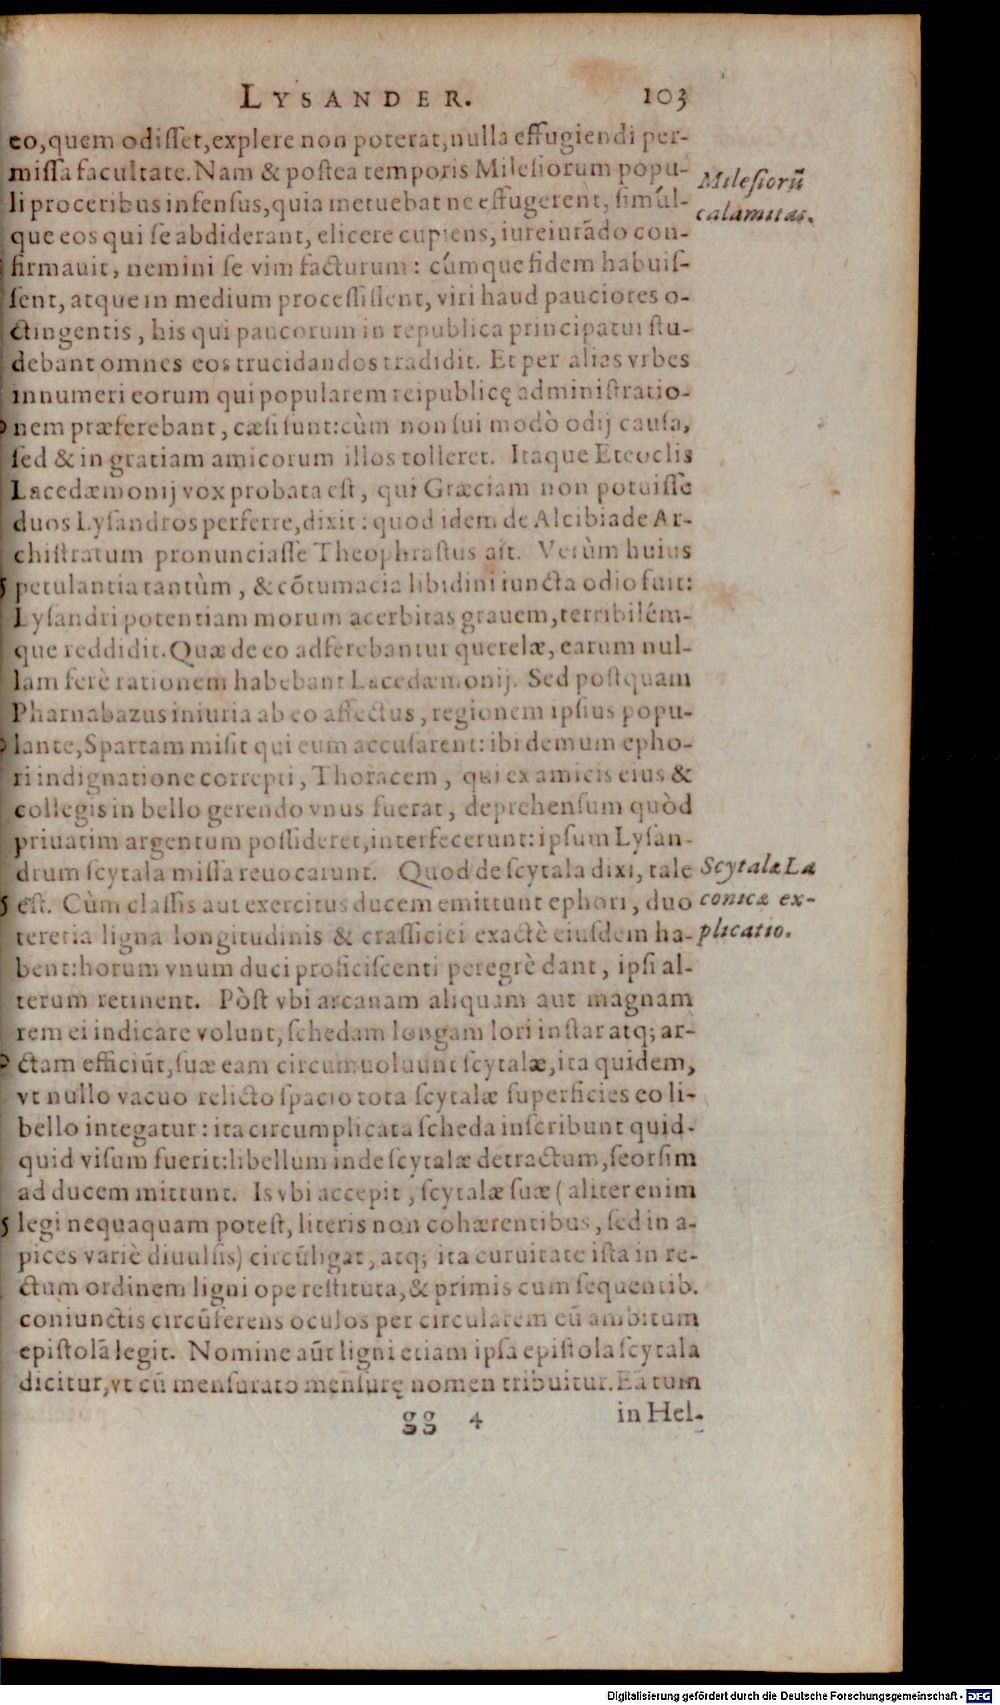 LYSANDER. 103
eo, quem odisset, explere non poterat, nulla effugiendi per-
missa facultate. Nam & postea temporis Milesiorum popu-
Milesiorū
li proceribus infensus, quia metuebat ne effugerent, simúl-
calamitas.
que eos qui se abdiderant, elicere cupiens, iureiurādo con-
firmauit, nemini se vim facturum: cúmque fidem habuis-
sent, atque in medium processissent, viri haud pauciores o-
ctingentis, his qui paucorum in republica principatui stu-
debant omnes eos trucidandos tradidit. Et per alias vrbes
innumeri eorum qui popularem reipublicę administratio-
nem præferebant, cæsi sunt: cùm non sui modò odij causa,
sed & in gratiam amicorum illos tolleret. Itaque Eteoclis
Lacedæmonij vox probata est, qui Græciam non potuisse
duos Lysandros perferre, dixit: quod idem de Alcibiade Ar-
chistratum pronunciasse Theophrastus ait. Verùm huius
5 petulantia tantùm, & cōtumacia libidini iuncta odio fuit:
Lysandri potentiam morum acerbitas grauem, terribilém-
que reddidit. Quæ de eo adferebantur querelæ, earum nul-
lam ferè rationem habebant Lacedæmonij. Sed postquam
Pharnabazus iniuria ab eo affectus, regionem ipsius popu-
lante, Spartam misit qui eum accusarent: ibi demum epho-
ri indignatione correpti, Thoracem, qui ex amicis eius &
collegis in bello gerendo vnus fuerat, deprehensum quòd
priuatim argentum possideret, interfecerunt: ipsum Lysan-
drum scytala missa reuocarunt. Quod de scytala dixi, tale
Scytalæ La
5 est. Cùm classis aut exercitus ducem emittunt ephori, duo
conicæ ex-
teretia ligna longitudinis & crassiciei exactè eiusdem ha-
plicatio.
bent: horum vnum duci proficiscenti peregrè dant, ipsi al-
terum retinent. Pòst vbi arcanam aliquam aut magnam
rem ei indicare volunt, schedam longam lori instar atq; ar-
ctam efficiūt, suæ eam circumuoluunt scytalæ, ita quidem,
vt nullo vacuo relicto spacio tota scytalæ superficies eo li-
bello integatur: ita circumplicata scheda inscribunt quid-
quid visum fuerit: libellum inde scytalæ detractum, seorsim
ad ducem mittunt. Is vbi accepit, scytalæ suæ (aliter enim
5 legi nequaquam potest, literis non cohærentibus, sed in a-
pices variè diuulsis) circūligat, atq; ita curuitate ista in re-
ctum ordinem ligni ope restituta, & primis cum sequentib.
coniunctis circūferens oculos per circularem eū ambitum
epistolā legit. Nomine aūt ligni etiam ipsa epistola scytala
dicitur, vt cū mensurato mensurę nomen tribuitur. Ea tum
gg 4 in Hel-
Digitalisierung gefördert durch die Deutsche Forschungsgemeinschaft - DFG